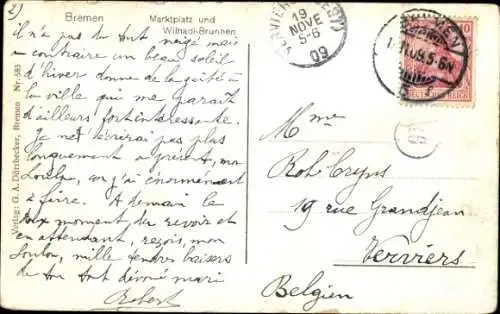 2)
Bremen
Marktplatz und
Willhadi-Brunnen
il n'a pas du tout neigé mais
au contraire un beau soleil
d'hiver donne de la gaieté à
la ville qui me paraît
d'ailleurs fort intéressante.
Je ne t'écrirai pas plus
longuement à présent, mon
Loulou, car j'ai énormément
à faire. A demain le
moment de revoir et
en attendant, reçois, mon
Loulou, mille tendres baisers
de ton tout dévoué mari
Robert
Verlag: G. A. Dörrbecker, Bremen Nr. 585
VERVIERS
19
NOVE
5-6
09
5-6N
10
Mme
Rob Cryns
19 rue Grandjean
Verviers
Belgien